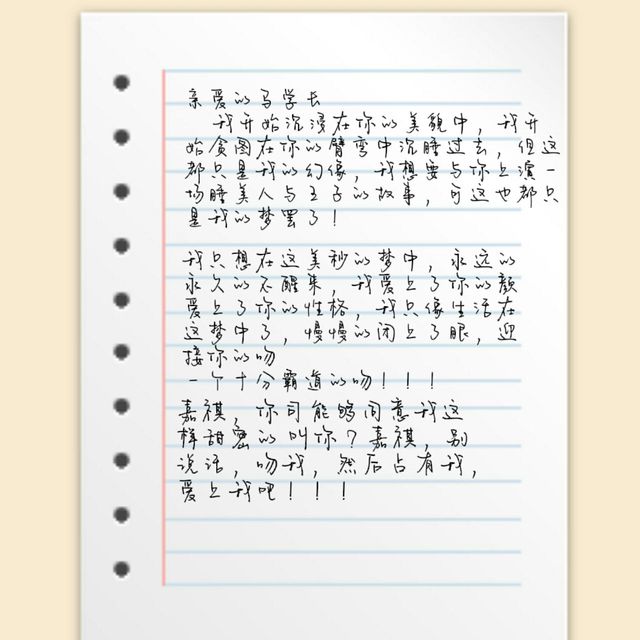 亲爱的马学长
我开始沉浸在你的美貌中，我开
始贪图在你的臂弯中沉睡过去，但这
都只是我的幻像，我想要与你上演一
场睡美人与王子的故事，可这也都只
是我的梦罢了！
我只想在这美秒的梦中，永远的
永久的不醒来，我爱上了你的颜
爱上了你的性格，我只像生活在
这梦中了，慢慢的闭上了眼，迎
接你的吻
一个十分霸道的吻！！！
嘉祺，你可能够同意我这
样甜蜜的叫你？嘉祺，别
说话，吻我，然后占有我，
爱上我吧！！！